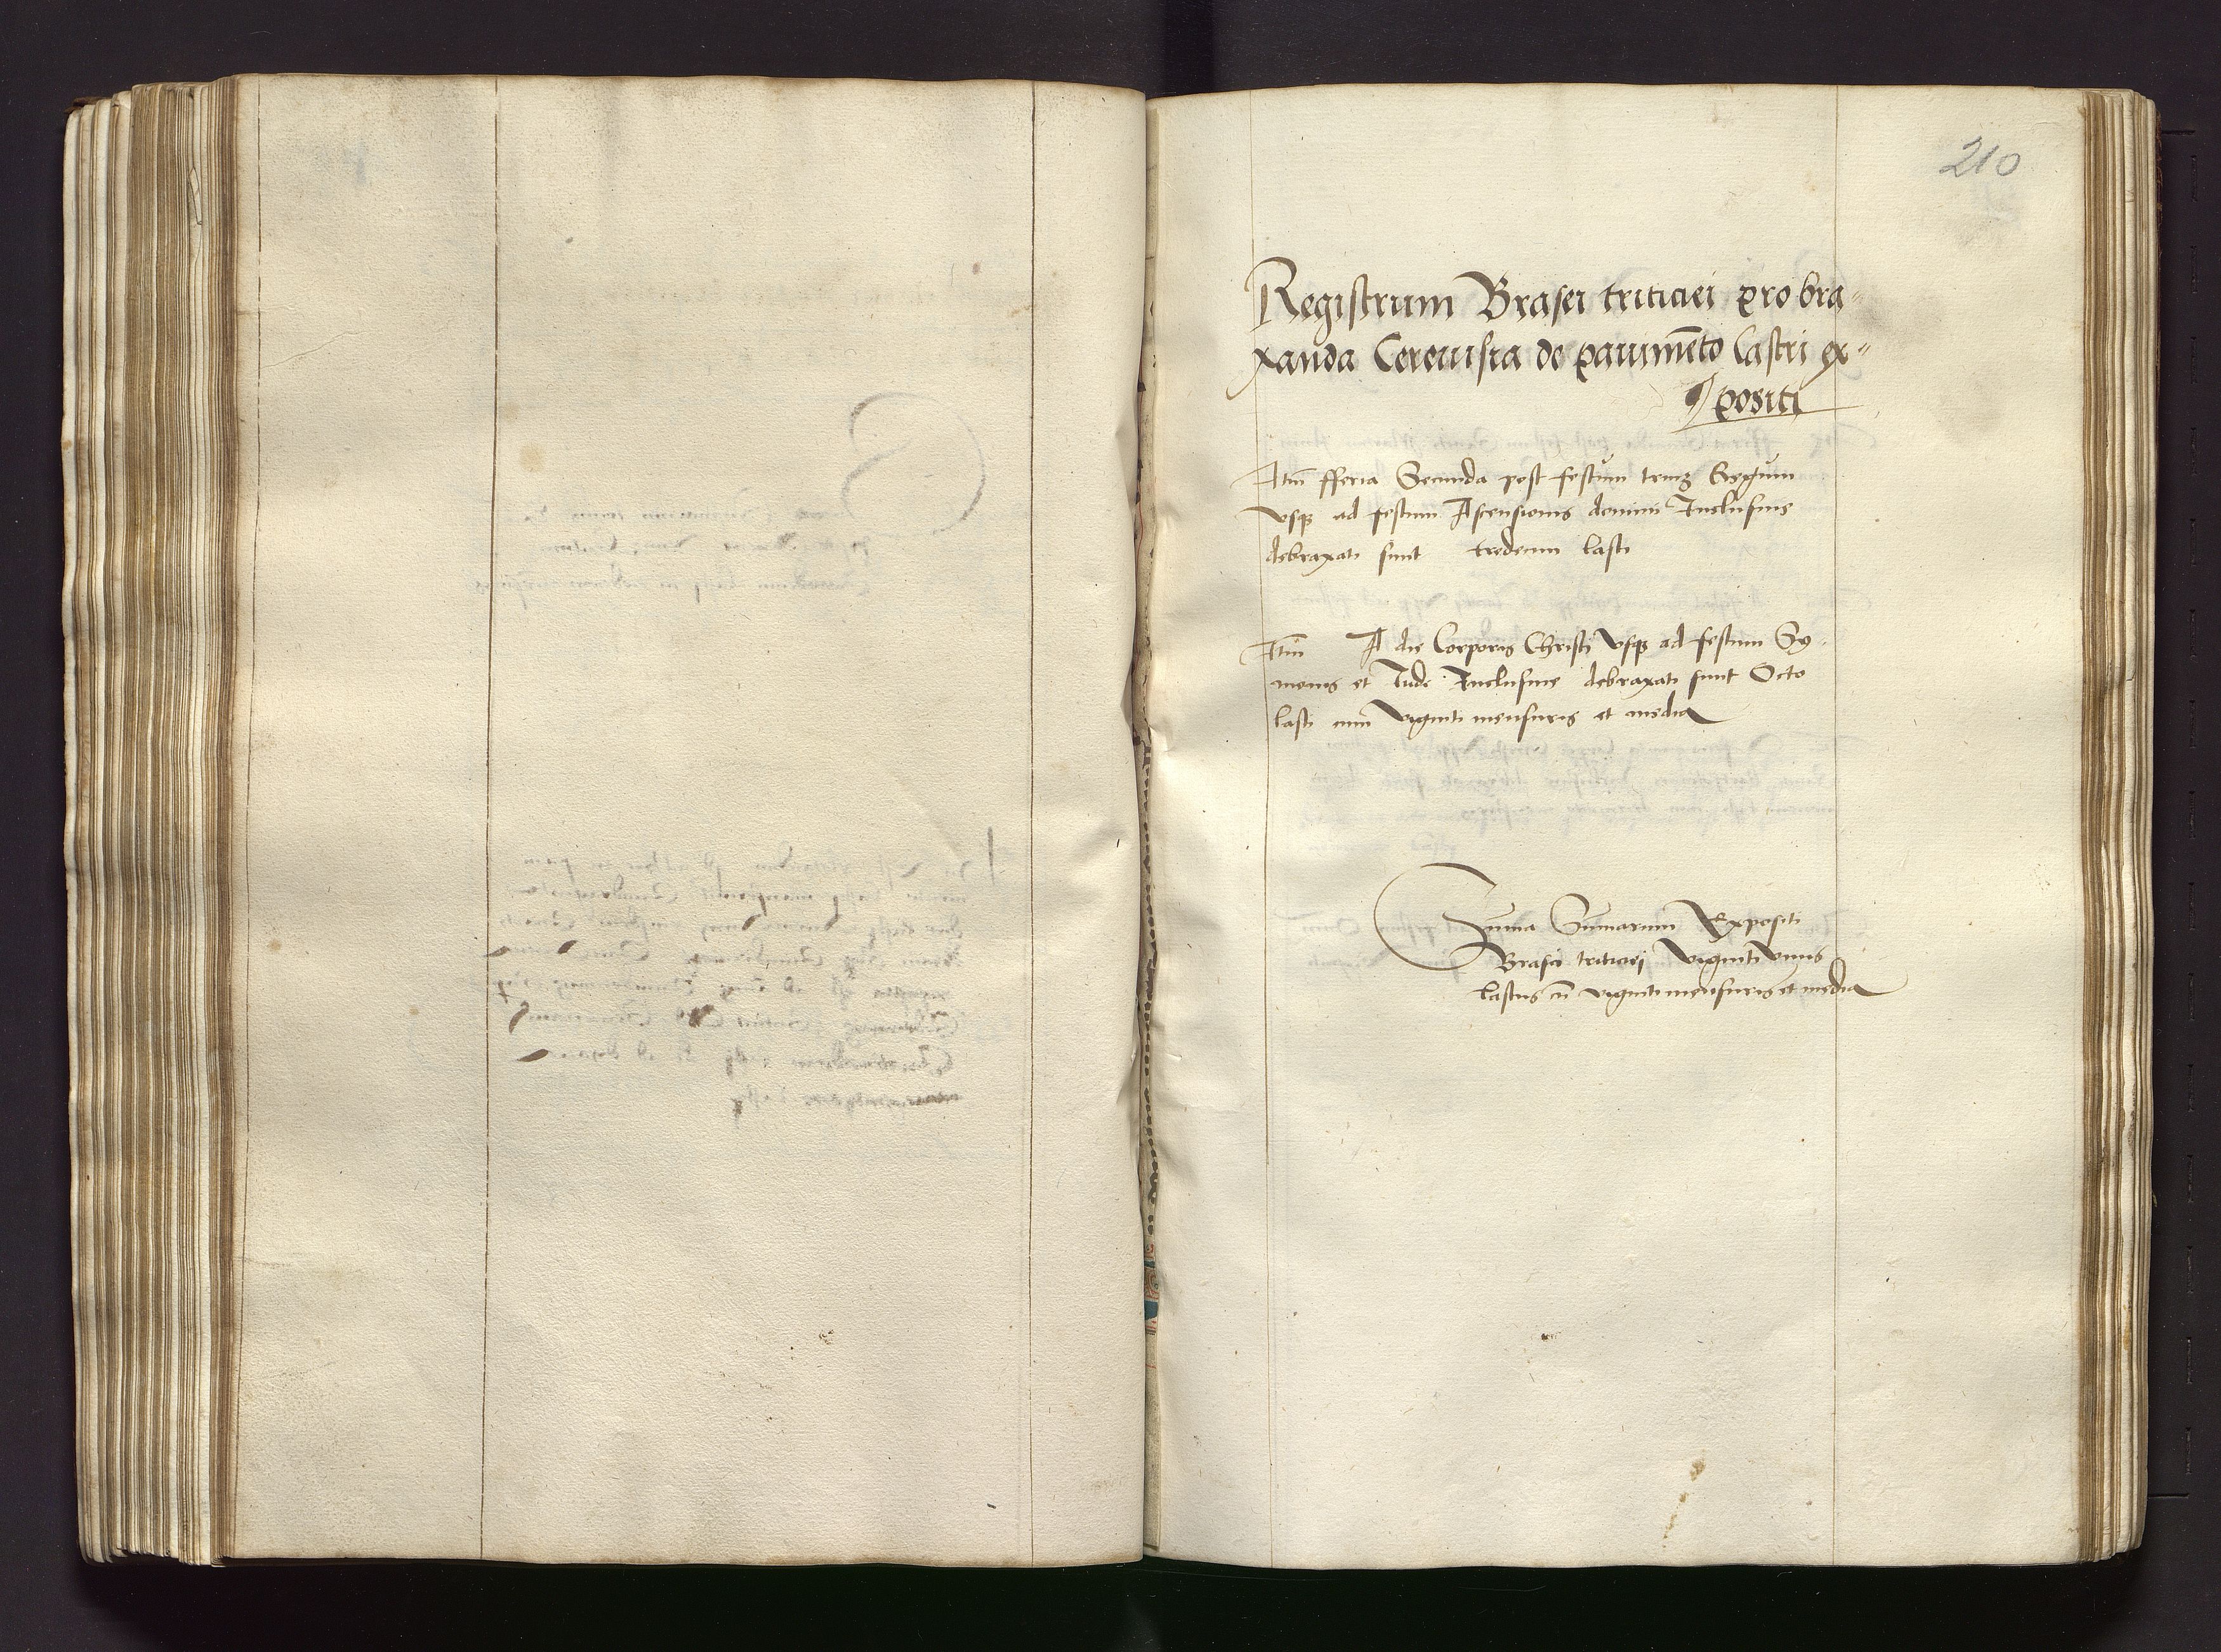 210
Registrum Brasei triticiei pro bra=
xanda Cereuisia de pauimēto lastri ex=
positi
Itm̄ fferia Secunda post festum triuȝ Regum
vsqꝫ ad festum Ascensionis domini Inclusiue
debraxati sunt tredecim lasti
Itm̄ A die Corporis Christi vsqꝫ ad festum Sy
monis et Jude Inclusiue debraxati sunt Octo
lasti cum viginti mensuris et media
Suma Sumarum Expositi
Brasei triticiej viginti vnus
lastus cū viginti mensuris et media